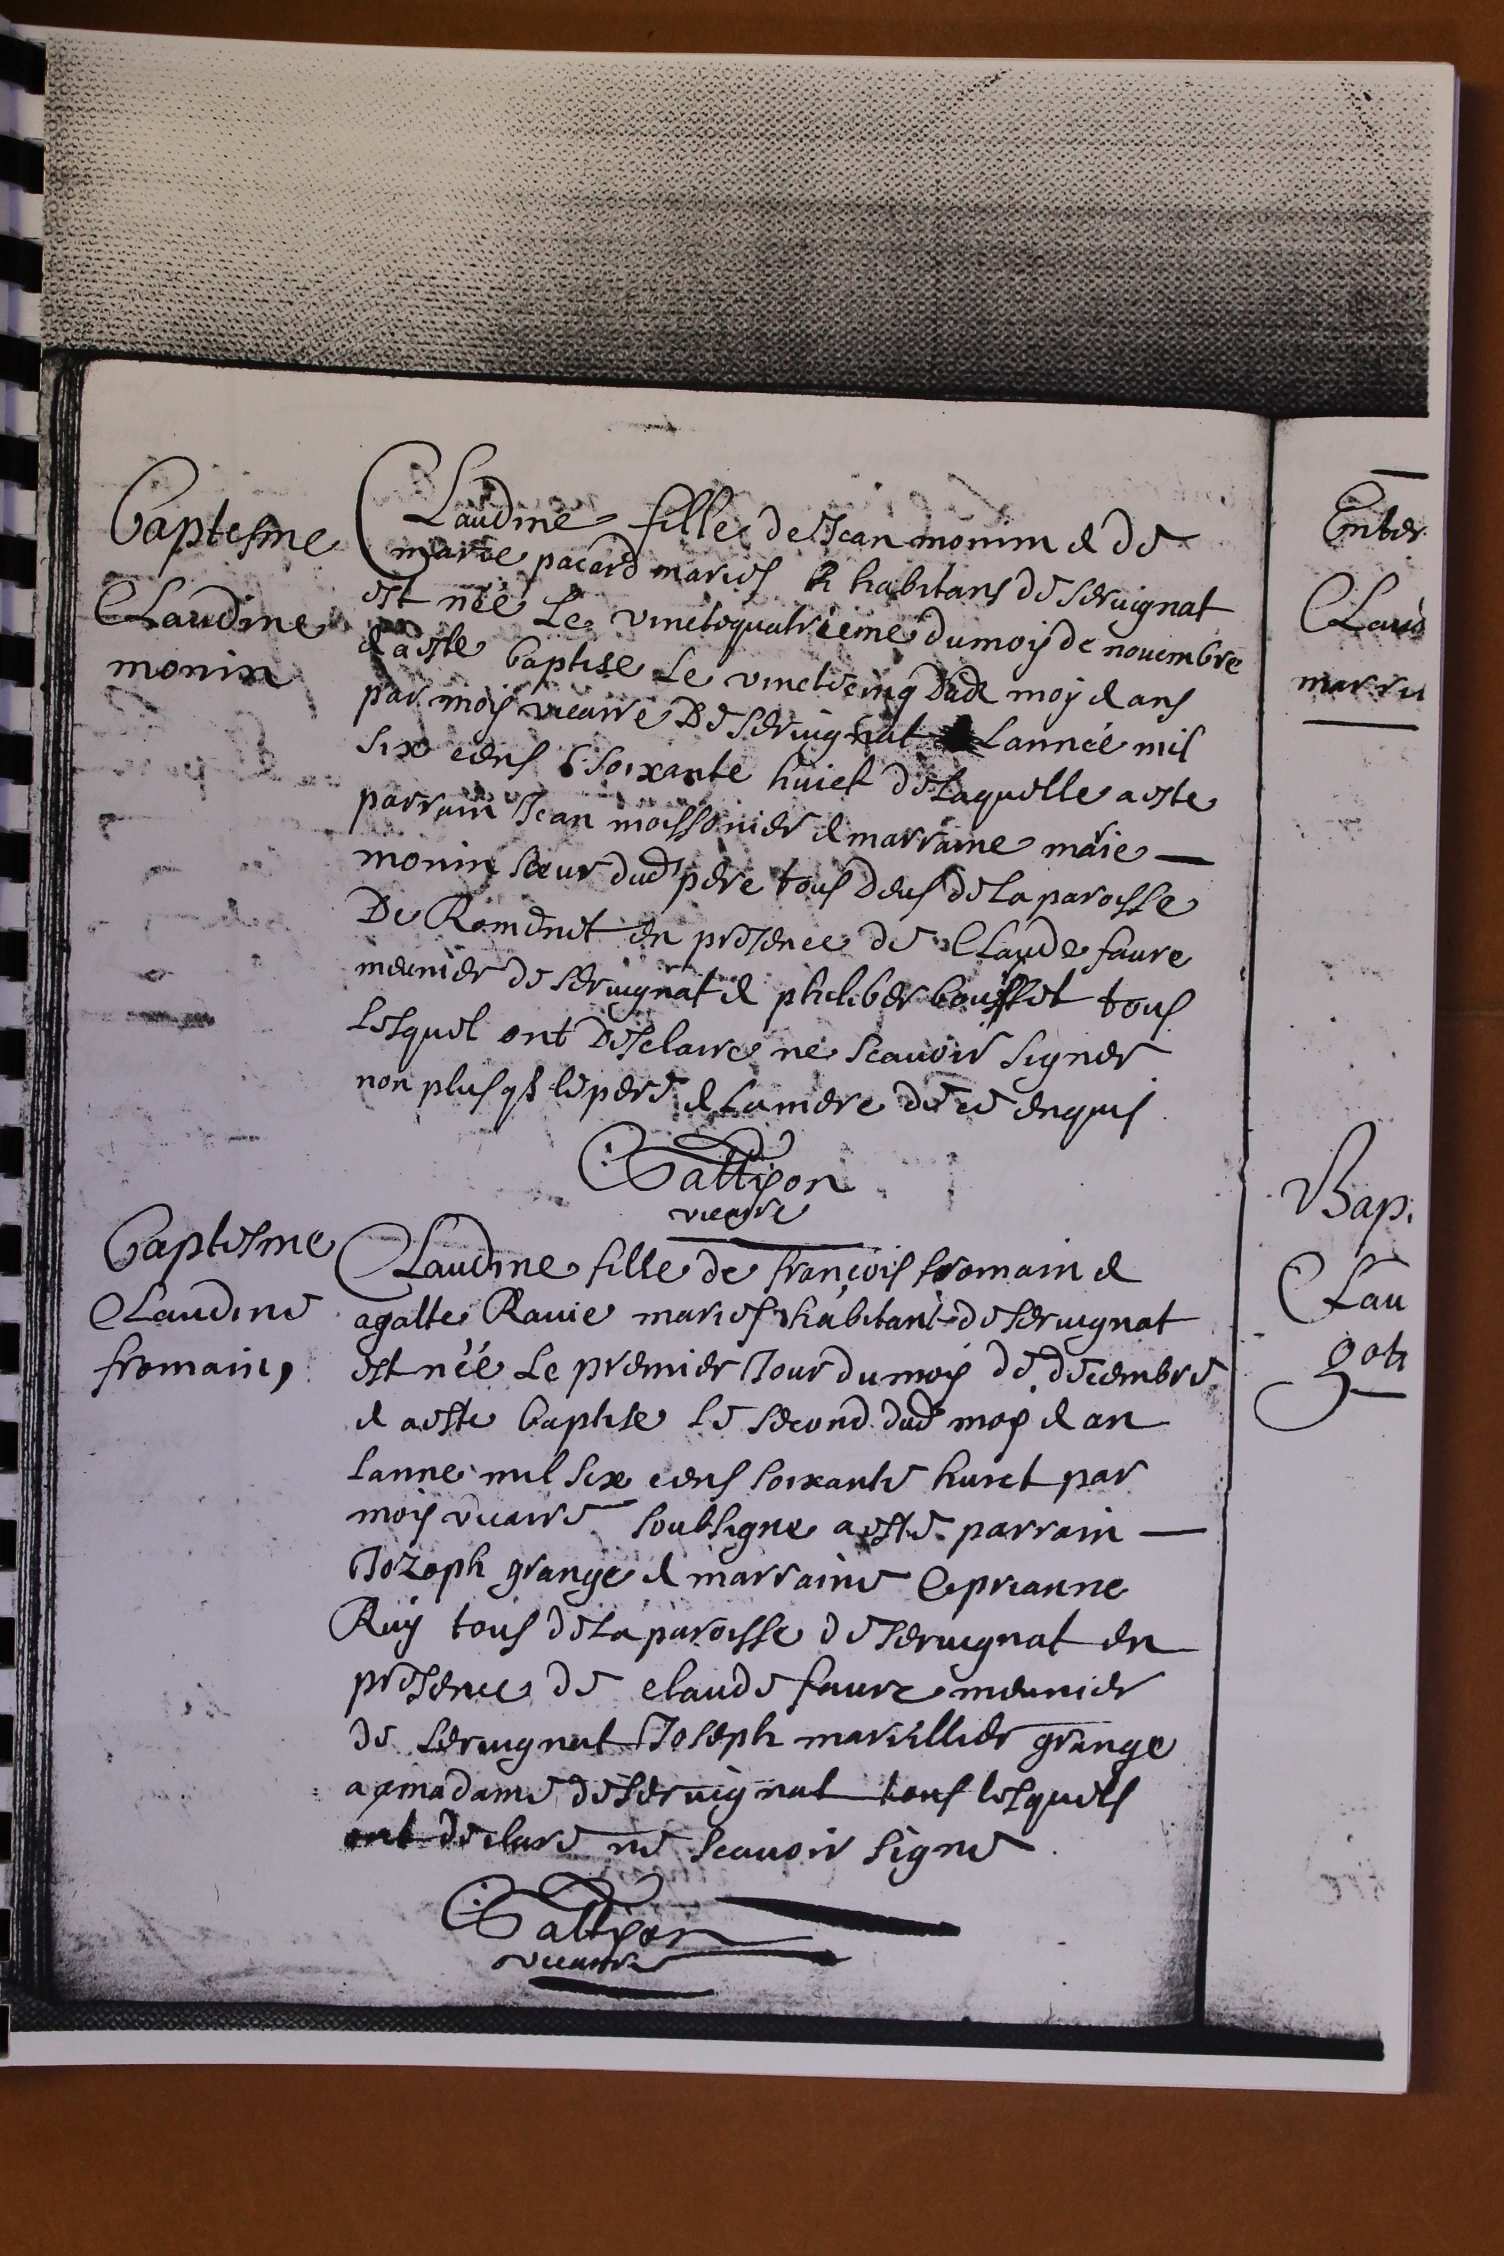 Baptesme
Claudine
monin
Claudine fille de Jean monin & de
marie pacard maries & habitans de seruignat
est née Le vinctequatrieme du mois de nouembre
& a este baptise Le vinctecinq dud moy & ans
par moy vicaire De seruignat Lannee mil
six cens soixante huict de laquelle a este
parrain Jean moissonier & marraine marie —
monin soeur dud pere tous deus de la paroisse
De Romenet en presence de Claude faure
meunier de seruignat & philiber bousset tous
lesquel ont desclaire ne scauoir signer
non plus q le pere & la mere de ce enquis
Battison
vicaire
Baptesme
Claudine
fromain,
Claudine fille de françois fromain &
agatte Rauie maries & habitant de seruignat
est née Le premier Jour du mois de decembre
& a este baptise le second dud moy & an
lanne mil six cens soixante huict par
moy vicaire soubsigne a este parrain —
Jozeph grange & marraine Ciprianne
Ruy tous de la paroisse de seruignat en
presence de claude faure meunier
de seruignat Joseph mareillier grange
a madame de seruignat tous lesquels
ont declare ne scauoir signe
Battison
vicaire
Enter
Claud
marru
Bap.
Clau
got